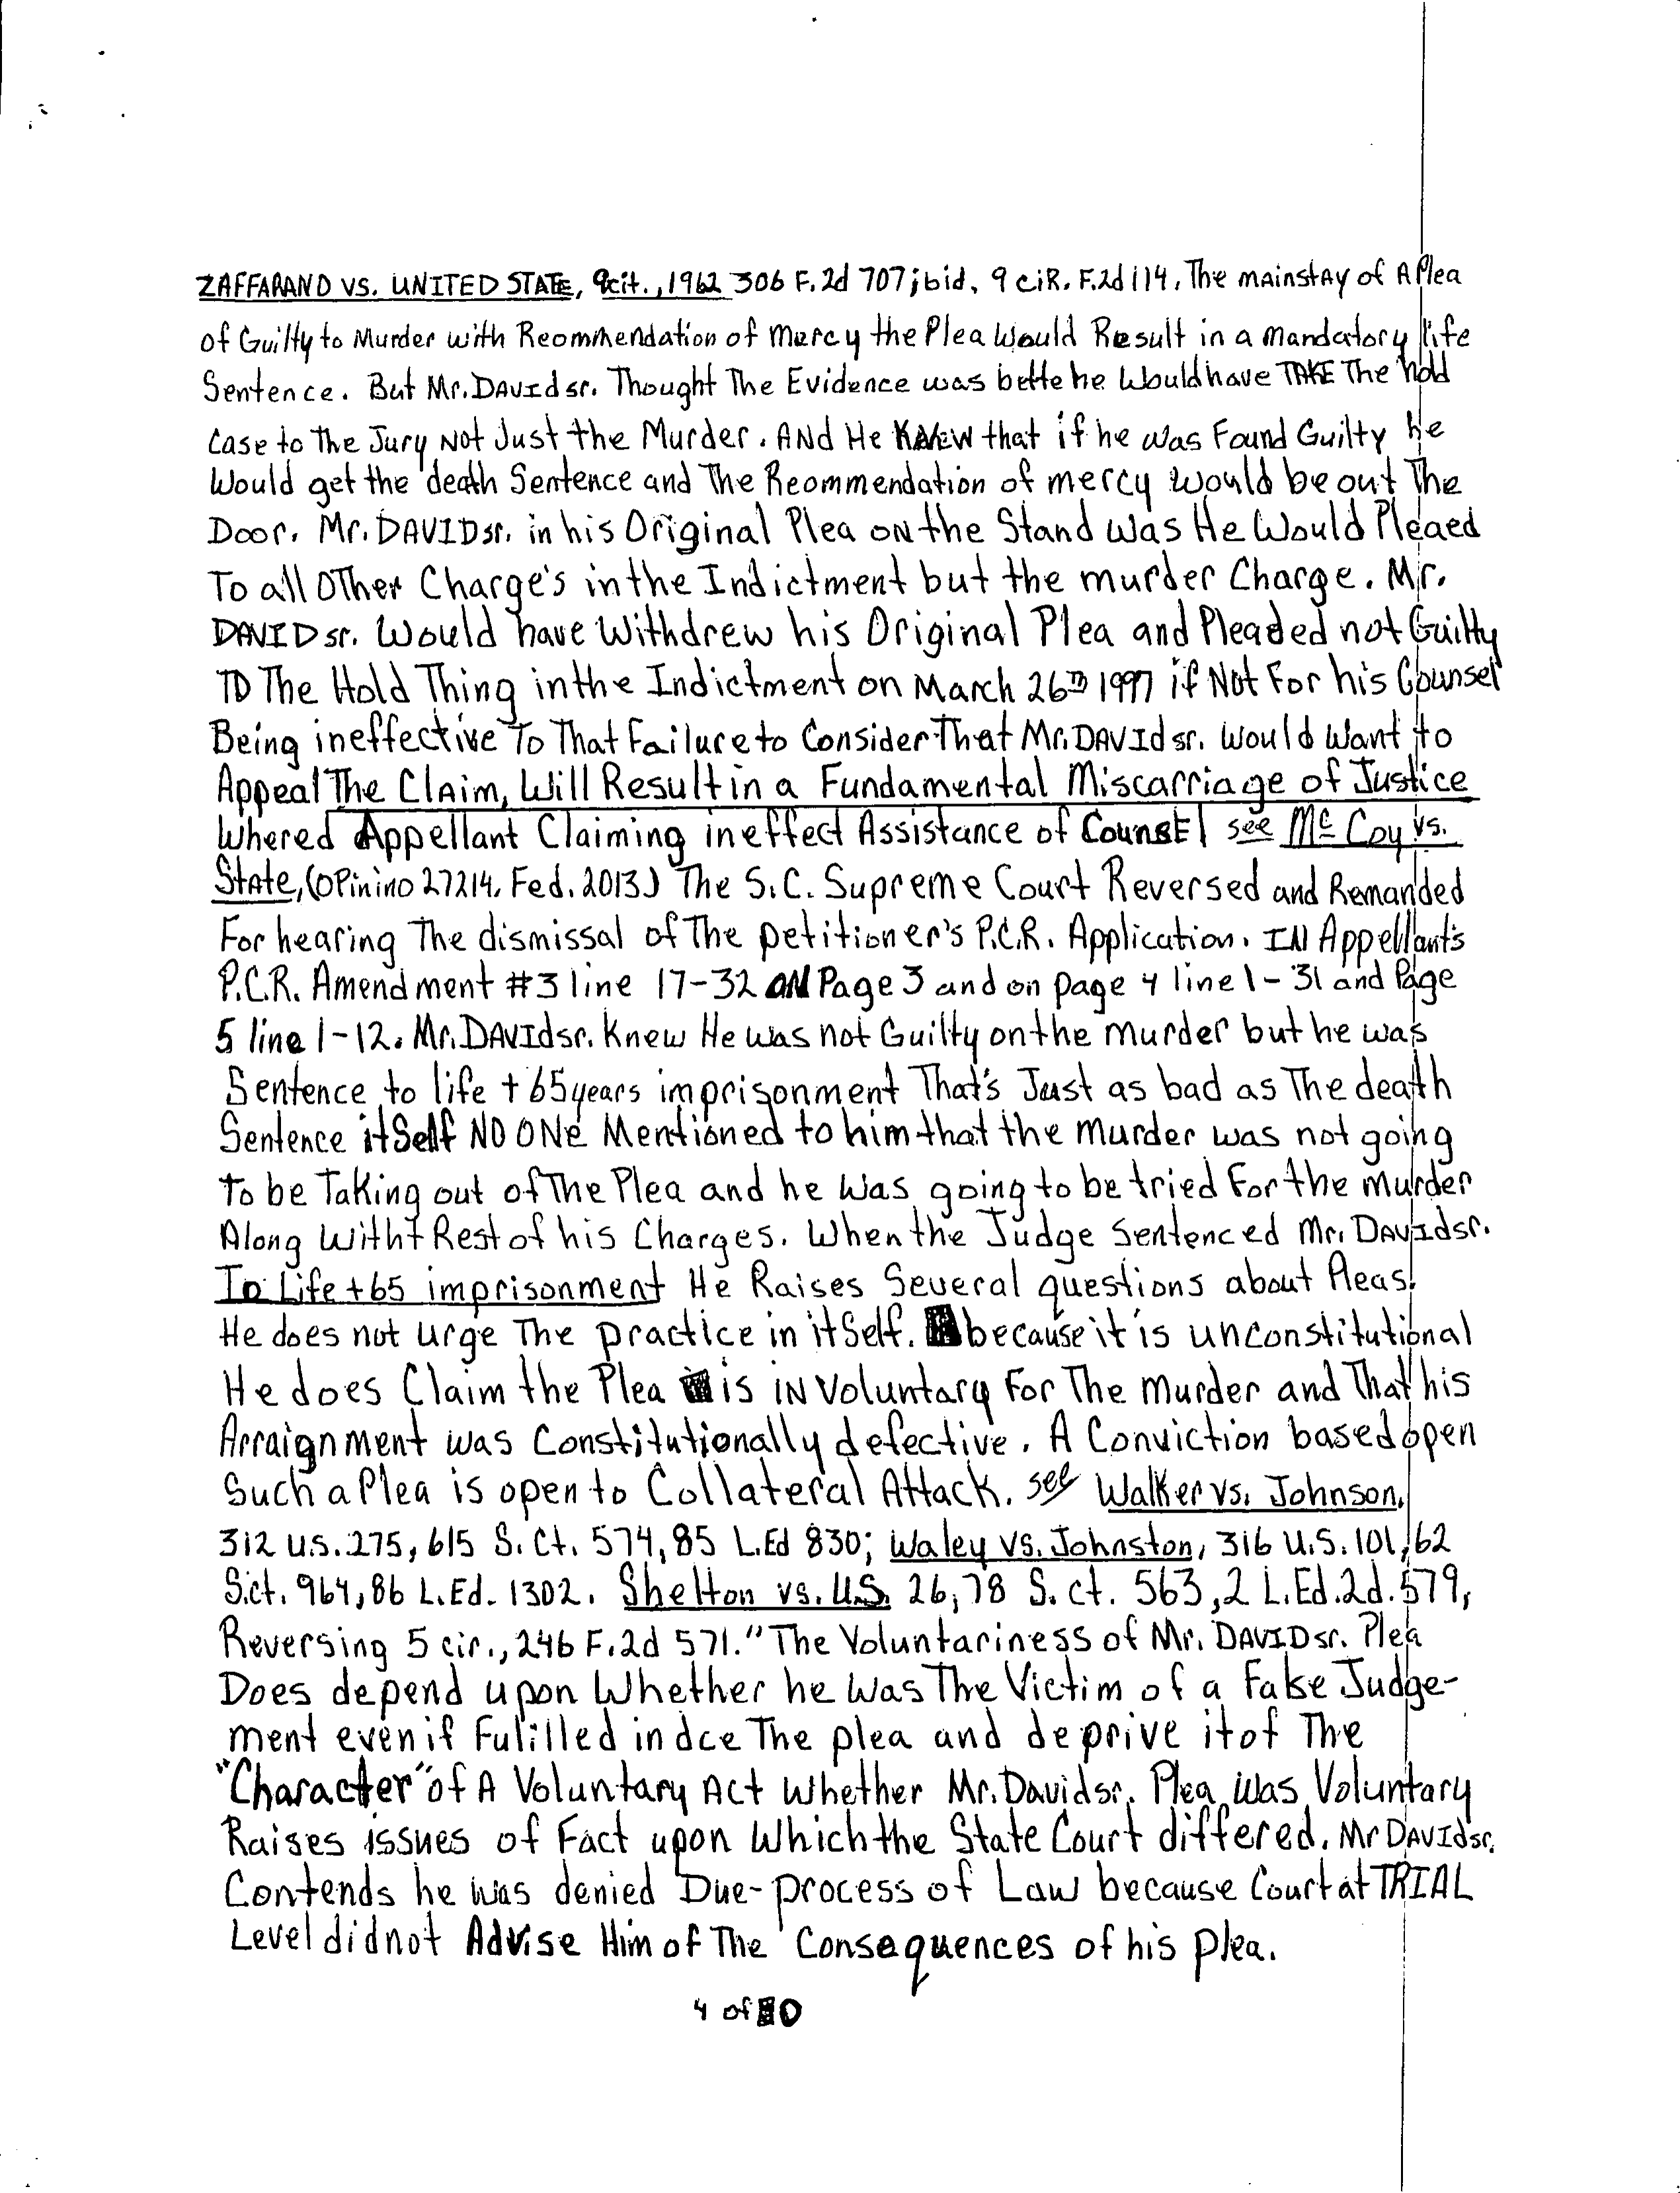 ZAFFARANO VS. UNITED STATE, 9cit., 1962 306 F.2d 707; ibid, 9 CiR. F.2d 114. The mainstay of A Plea
of Guilty to Murder with Reommendation of Mercy the Plea Would Result in a Mandatory life
Sentence. But Mr. DAVID sr. Thought The Evidence was bette he Would have TAKE The hold
Case to The Jury Not Just the Murder. AND He KNEW that if he was Found Guilty he
Would get the death Sentence and The Reommendation of mercy would be out The
Door. Mr. DAVID sr. in his Original Plea on the Stand was He Would Pleaed
To all OTher Charge's in the Indictment but the murder Charge. Mr.
DAVID sr. Would have Withdrew his Original Plea and Pleaded not Guilty
TO The Hold Thing in the Indictment on March 26TH 1997 if Not For his Counsel
Being ineffective To That Failure to Consider That Mr. DAVID sr. Would Want to
Appeal The Claim, Will Result in a Fundamental Miscarriage of Justice
Whered Appellant Claiming ineffect Assistance of Counsel see McCoy vs.
State, (OPinino 27214. Fed. 2013) The S.C. Supreme Court Reversed and Remanded
For hearing The dismissal of The petitioner's P.C.R. Application. IN Appellant's
P.C.R. Amendment #3 line 17-32 ON Page 3 and on page 4 line 1-31 and Page
5 line 1-12. Mr. DAVID sr. Knew He was not Guilty on the Murder but he was
Sentence to life + 65 years imprisonment That's Just as bad as The death
Sentence itSelf NO ONE Mentioned to him that the murder was not going
To be Taking out of The Plea and he was going to be tried For the murder
Along With t Rest of his Charges. When the Judge Sentenced Mr. DAVID sr.
To Life + 65 imprisonment He Raises Several questions about Pleas.
He does not urge The practice in itSelf. because it is unconstitutional
He does Claim the Plea is iN Voluntary For The Murder and That his
Arraignment was Constitutionally defective. A Conviction based open
Such a Plea is open to Collateral Attack. see Walker vs. Johnson,
312 U.S. 275, 615 S. Ct. 574, 85 L.Ed 830; Waley vs. Johnston, 316 U.S. 101, 62
S.ct. 964, 86 L.Ed. 1302. Shelton vs. U.S. 26, 78 S. ct. 563, 2 L.Ed.2d. 579,
Reversing 5 cir., 246 F.2d 571. "The Voluntariness of Mr. DAVID sr. Plea
Does depend upon Whether he Was The Victim of a Fake Judge-
ment even if Fulilled indce The plea and deprive it of The
"Character" of A Voluntary Act Whether Mr. David sr. Plea was Voluntary
Raises issues of Fact upon Which the State Court differed. Mr DAVID sr.
Contends he was denied Due-process of Law because Court at TRIAL
Level did not Advise Him of The Consequences of his plea.
4 of 10